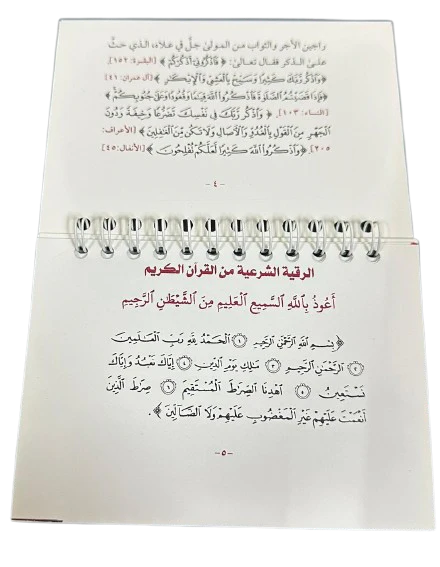 راجين الأجر والثواب من المولى جلَّ في علاه، الذي حثَّ
على الذكر فقال تعالى: ﴿فَاذْكُرُونِي أَذْكُرْكُمْ﴾ [البقرة: ١٥٢].
﴿وَاذْكُر رَّبَّكَ كَثِيرًا وَسَبِّحْ بِالْعَشِيِّ وَالْإِبْكَٰرِ﴾ [آل عمران: ٤١]
﴿فَإِذَا قَضَيْتُمُ الصَّلَوٰةَ فَاذْكُرُوا اللَّهَ قِيَٰمًا وَقُعُودًا وَعَلَىٰ جُنُوبِكُمْ﴾
[النساء: ١٠٣]. ﴿وَاذْكُر رَّبَّكَ فِي نَفْسِكَ تَضَرُّعًا وَخِيفَةً وَدُونَ
الْجَهْرِ مِنَ الْقَوْلِ بِالْغُدُوِّ وَالْآصَالِ وَلَا تَكُن مِّنَ الْغَٰفِلِينَ﴾ [الأعراف:
٢٠٥]. ﴿وَاذْكُرُوا اللَّهَ كَثِيرًا لَّعَلَّكُمْ تُفْلِحُونَ﴾ [الأنفال: ٤٥]
-٤-
الرقية الشرعية من القرآن الكريم
أَعُوذُ بِاللَّهِ السَّمِيعِ الْعَلِيمِ مِنَ الشَّيْطَٰنِ الرَّجِيمِ
﴿بِسْمِ اللَّهِ الرَّحْمَٰنِ الرَّحِيمِ ١ الْحَمْدُ لِلَّهِ رَبِّ الْعَٰلَمِينَ
٢ الرَّحْمَٰنِ الرَّحِيمِ ٣ مَٰلِكِ يَوْمِ الدِّينِ ٤ إِيَّاكَ نَعْبُدُ وَإِيَّاكَ
نَسْتَعِينُ ٥ اهْدِنَا الصِّرَٰطَ الْمُسْتَقِيمَ ٦ صِرَٰطَ الَّذِينَ
أَنْعَمْتَ عَلَيْهِمْ غَيْرِ الْمَغْضُوبِ عَلَيْهِمْ وَلَا الضَّآلِّينَ﴾.
-٥-